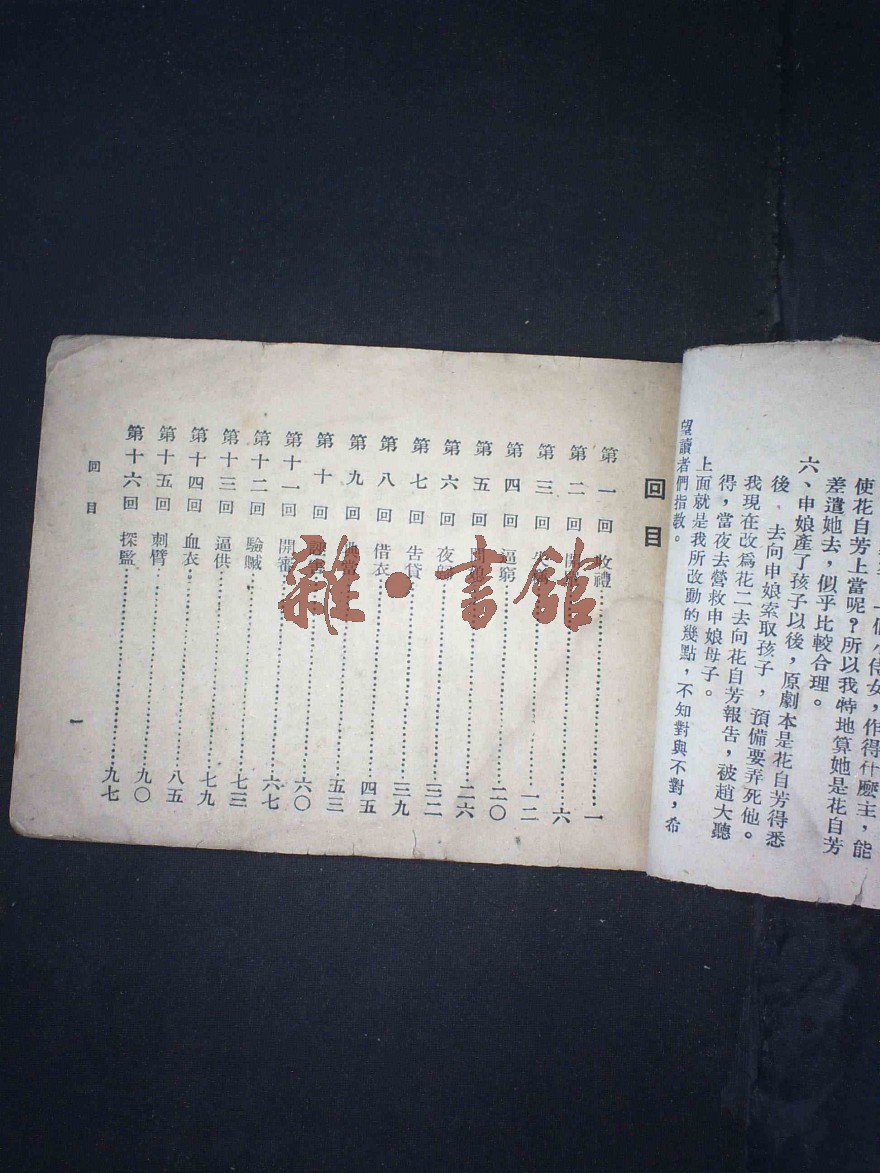 使花自芳上當呢？所以我特地算她是花自芳
差遣她去，似乎比較合理。
六、申娘產了孩子以後，原劇本是花自芳得悉
後、去向申娘索取孩子，預備要弄死他。
我現在改爲花二去向花自芳報告，被趙大聽
得，當夜去營救申娘母子。
上面就是我所改動的幾點，不知對與不對，希
望讀者們指教。
回目
第一回 收禮 一
第二回 六
第三回 一二
第四回 逼窮 二〇
第五回 二六
第六回 夜 三二
第七回 告貸 三九
第八回 借衣 四五
第九回 五三
第十回 六〇
第十一回 開審 六七
第十二回 驗贓 七三
第十三回 逼供 七九
第十四回 血衣 八五
第十五回 刺臂 九〇
第十六回 探監 九七
回目
一
雜·書館